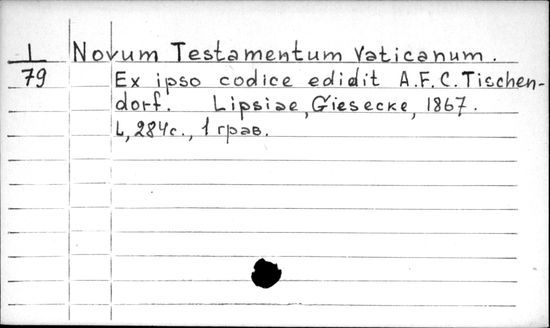 L Novum Testamentum Vaticanum.
79 Ex ipso codice edidit A.F.C. Tischen-
dorf. Lipsiae, Giesecke, 1867.
L, 284с., 1 грав.